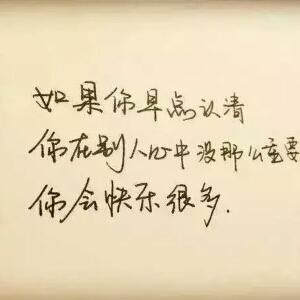 如果你早点认清
你在别人心中没那么重要
你会快乐很多.